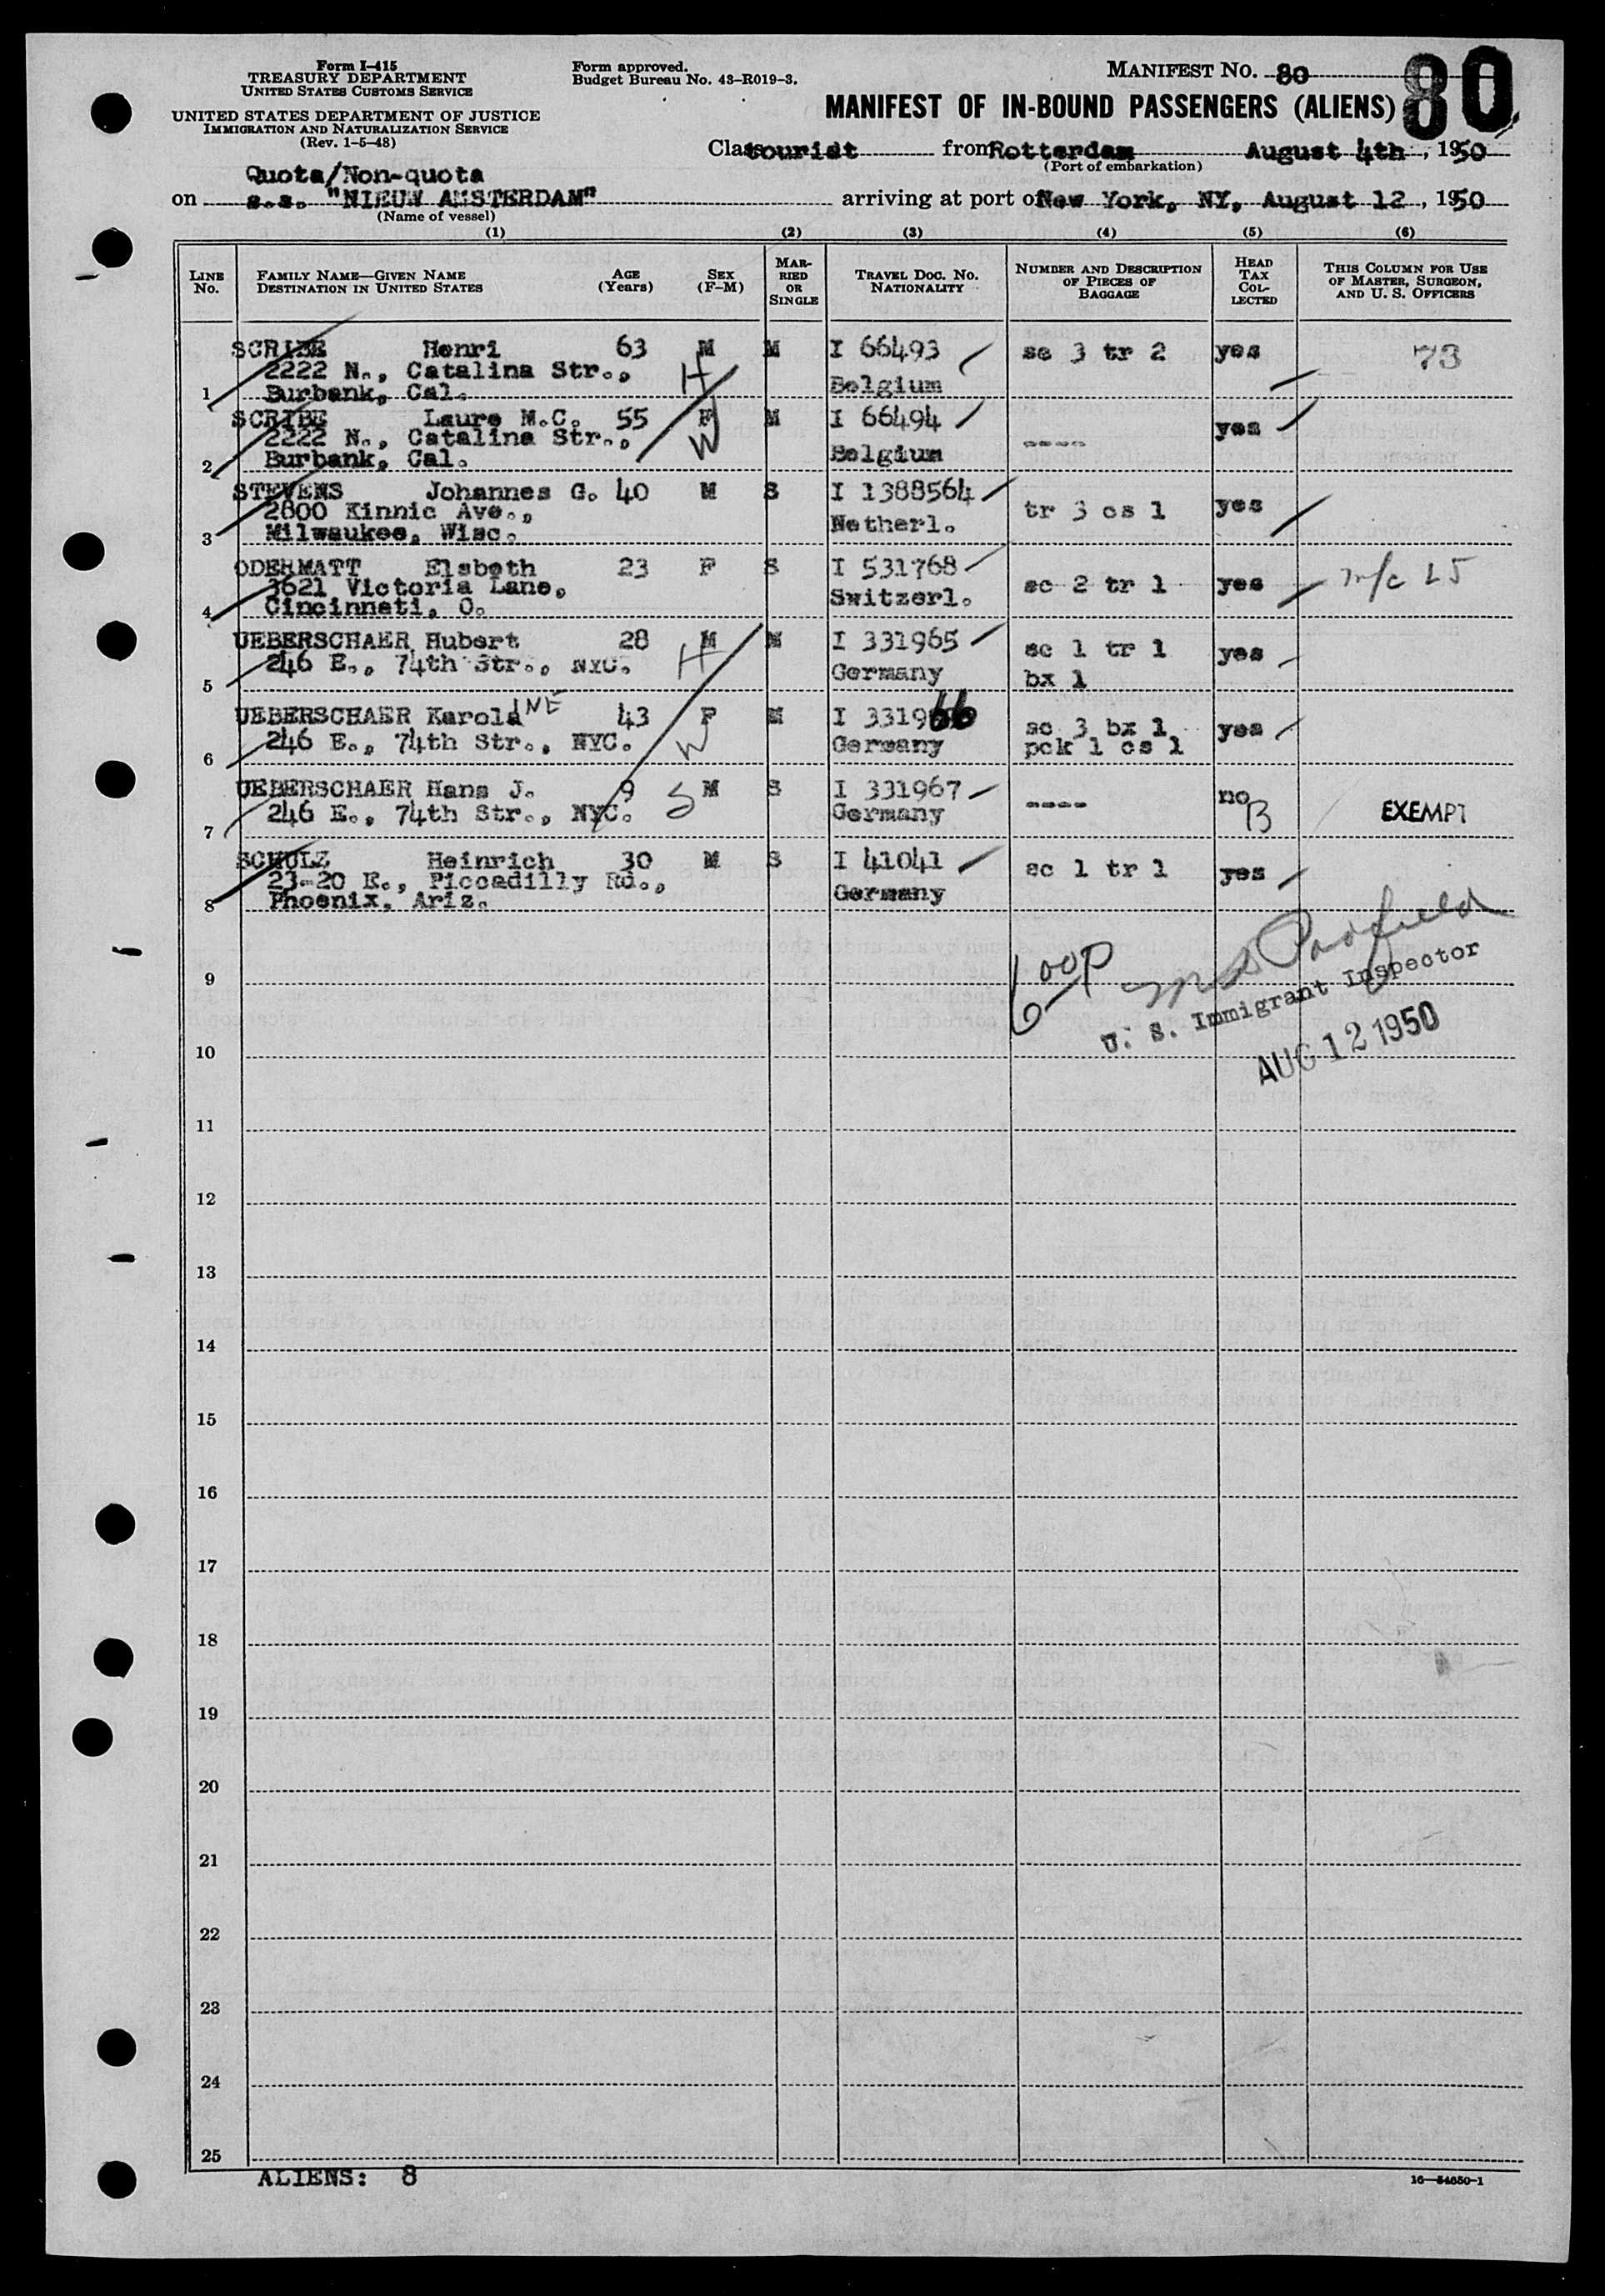 Form I-415
TREASURY DEPARTMENT
UNITED STATES CUSTOMS SERVICE
UNITED STATES DEPARTMENT OF JUSTICE
IMMIGRATION AND NATURALIZATION SERVICE
(Rev. 1-5-48)
Form approved.
Budget Bureau No. 43-R019-3.
MANIFEST NO. 80
80
MANIFEST OF IN-BOUND PASSENGERS (ALIENS)
Class tourist from Rotterdam August 4th, 1950
(Port of embarkation)
Quota/Non-quota
on s.s. "NIEUW AMSTERDAM" arriving at port of New York, NY, August 12, 1950
(Name of vessel)
(1) (2) (3) (4) (5) (6)
LINE No. FAMILY NAME—GIVEN NAME DESTINATION IN UNITED STATES AGE (Years) SEX (F-M) MARRIED OR SINGLE TRAVEL DOC. NO. NATIONALITY NUMBER AND DESCRIPTION OF PIECES OF BAGGAGE HEAD TAX COLLECTED THIS COLUMN FOR USE OF MASTER, SURGEON, AND U. S. OFFICERS
SCRIBE Henri 63 M M I 66493 sc 3 tr 2 yes 73
2222 N., Catalina Str., H
1 Burbank, Cal. Belgium
SCRIBE Laure M.C. 55 F M I 66494 ---- yes
2222 N., Catalina Str., W
2 Burbank, Cal. Belgium
STEVENS Johannes G. 40 M S I 1388564 tr 3 cs 1 yes
2800 Kinnic Ave.,
3 Milwaukee, Wisc. Netherl.
ODERMATT Elsbeth 23 F S I 531768 sc 2 tr 1 yes
3621 Victoria Lane,
4 Cincinnati, O. Switzerl.
UEBERSCHAER Hubert 28 M M I 331965 sc 1 tr 1 yes
246 E., 74th Str., NYC. H Germany bx 1
5
UEBERSCHAER Karola INE 43 F M I 331966 sc 3 bx 1 yes
246 E., 74th Str., NYC. W Germany pck 1 cs 1
6
UEBERSCHAER Hans J. 9 S M S I 331967 ---- no B EXEMPT
246 E., 74th Str., NYC. Germany
7
SCHULZ Heinrich 30 M S I 41041 sc 1 tr 1 yes
23-20 E., Piccadilly Rd.,
8 Phoenix, Ariz. Germany
9
U. S. Immigrant Inspector
10
AUG 12 1950
11
12
13
14
15
16
17
18
19
20
21
22
23
24
25
ALIENS: 8
16—54650-1